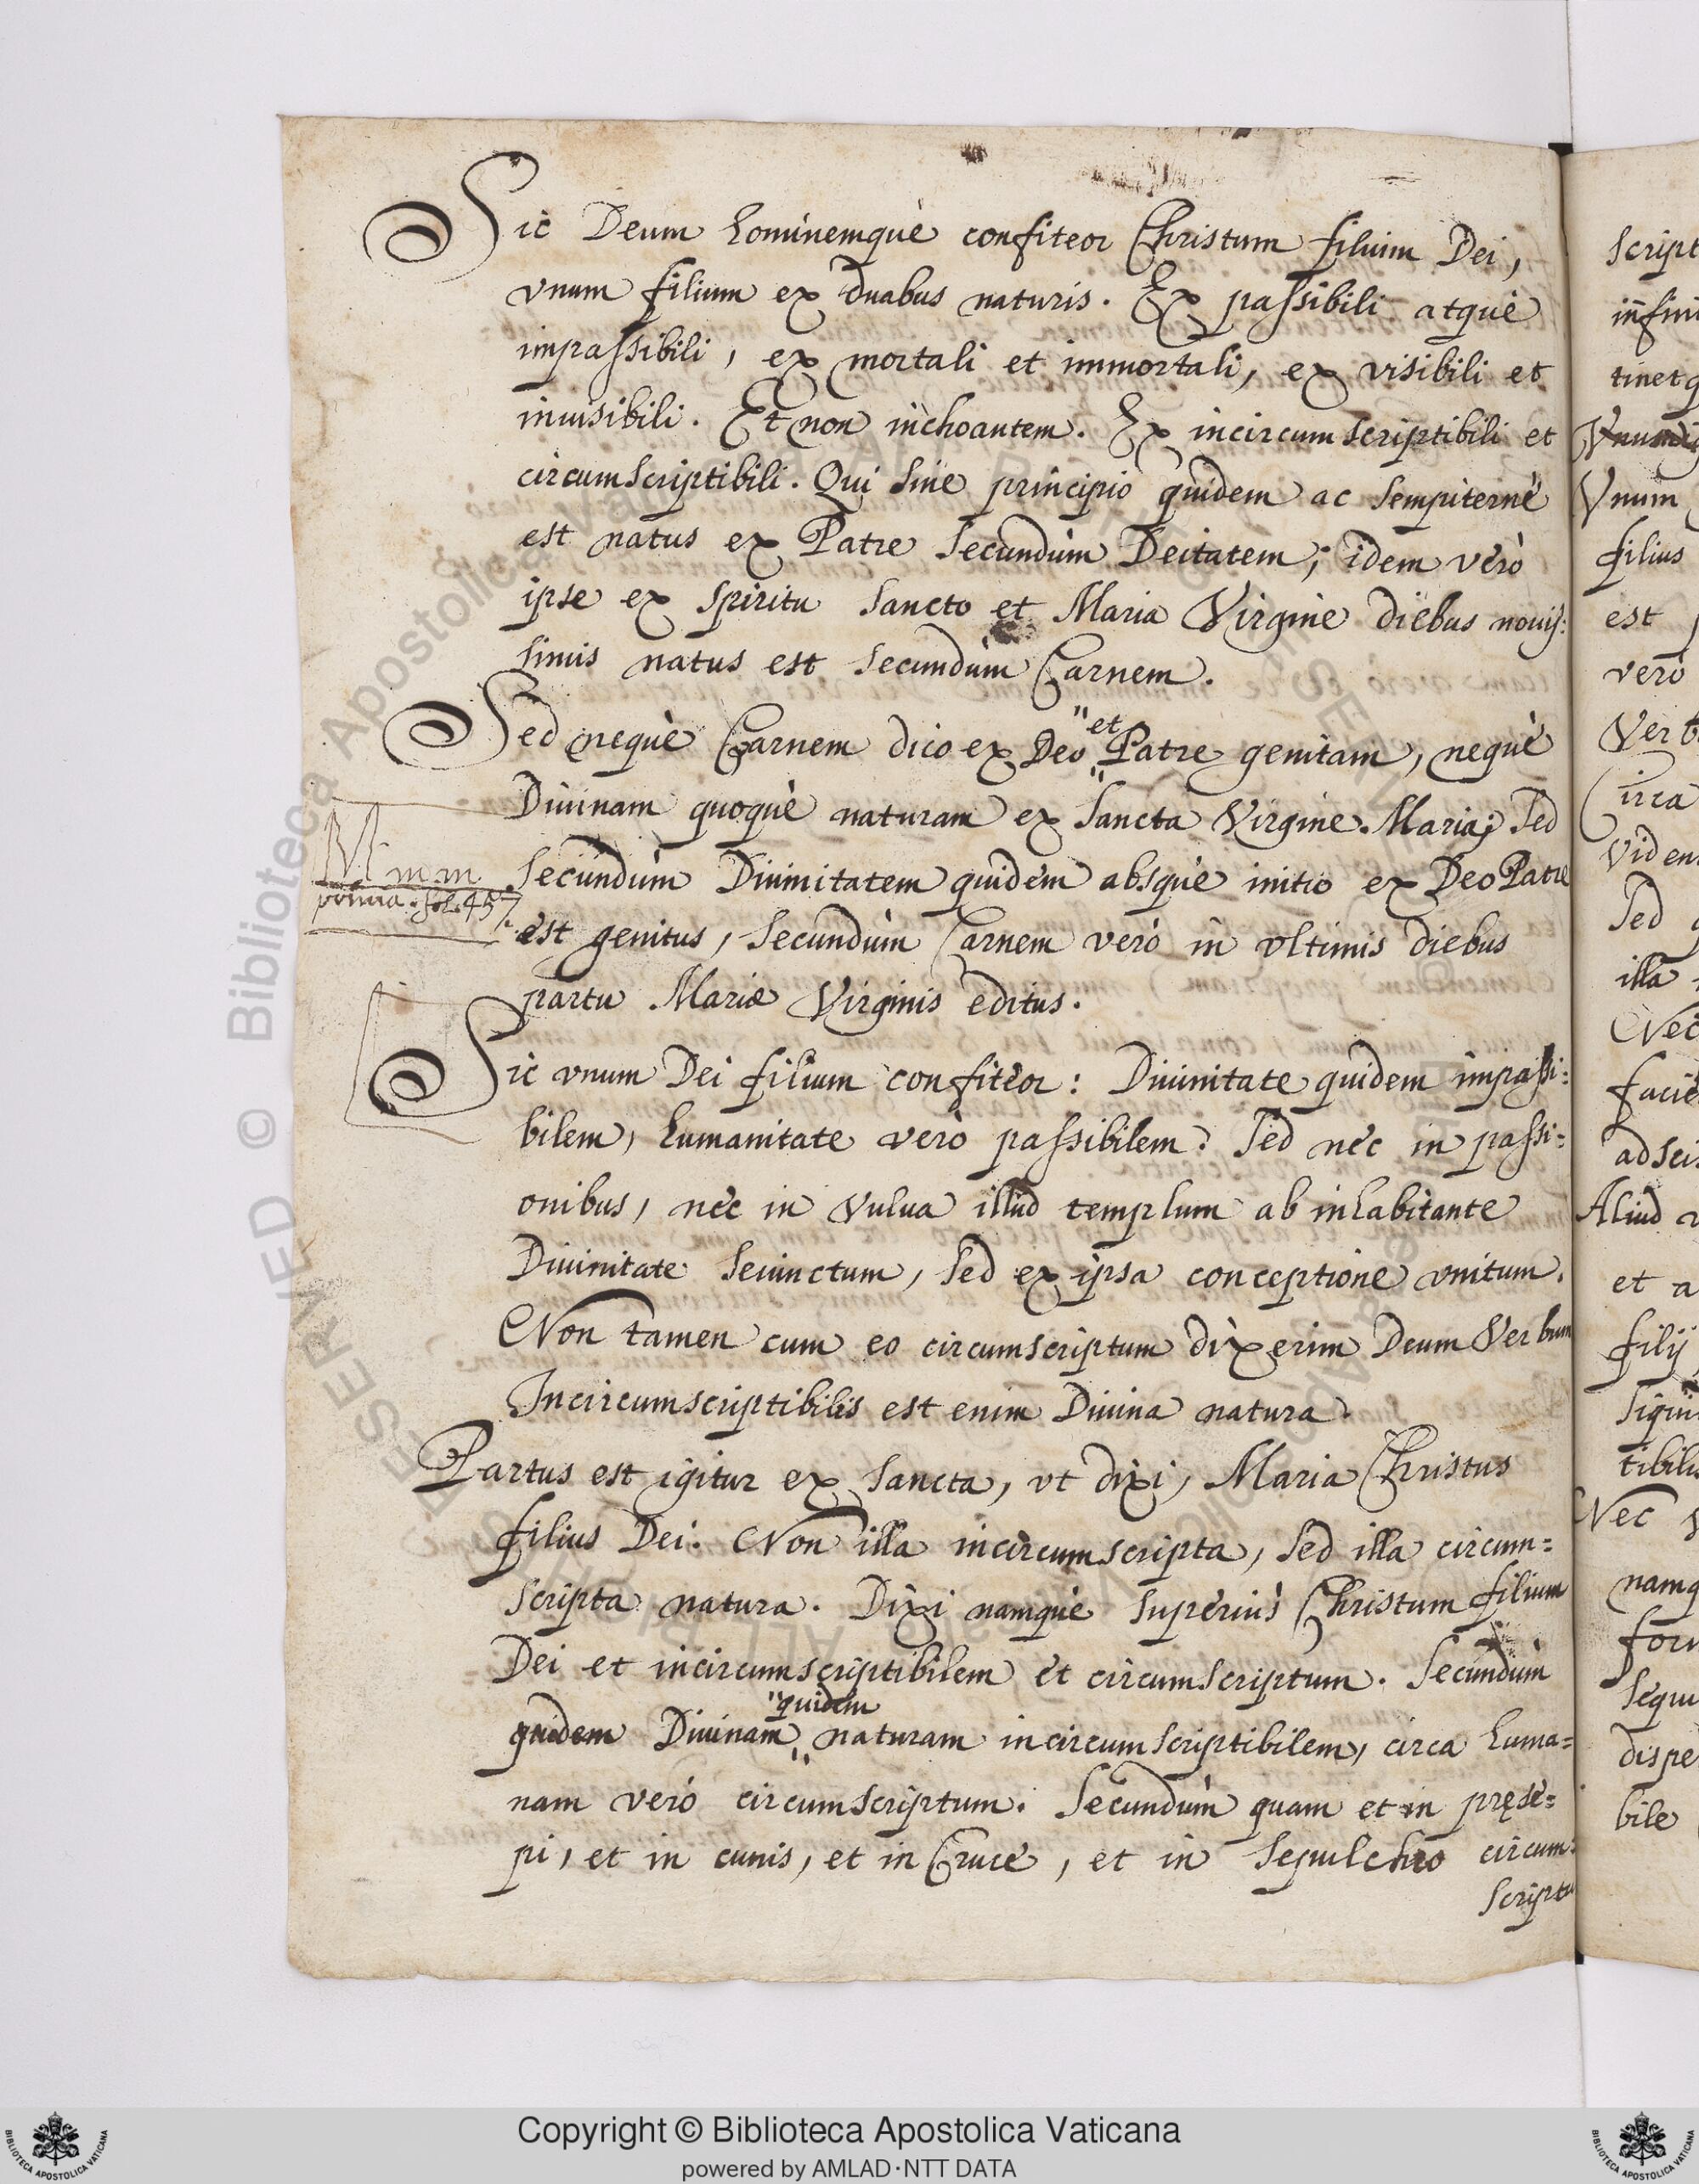 Sic Deum hominemquè confiteor Christum filium Dei,
vnum filium ex duabus naturis. Ex passibili atquè
impassibili, ex mortali et immortali, ex visibili et
inuisibili. Et non inchoantem. Ex incircumscriptibili et
circumscriptibili. Qui sine principio quidem ac sempiternè
est natus ex Patre secundùm Deitatem; idem verò
ipse ex Spiritu sancto et Maria Virgine diebus nouis:
simis natus est secundùm Carnem.
Sed nequè Carnem dico ex Deo "et" Patre genitam, nequè
Diuinam quoquè naturam ex sancta Virgine Maria; sed
secundùm Diuinitatem quidem absquè initio ex Deo Patre
est genitus, secundùm Carnem verò in vltimis diebus
partu Mariæ Virginis editus.
fol. 457
Sic vnum Dei filium confiteor: Diuinitate quidem impassi:
bilem, humanitate verò passibilem: sed nec in passi=
onibus, nec in vulua illud templum ab inhabitante
Diuinitate seiunctum, sed ex ipsa conceptione vnitum.
Non tamen cum eo circumscriptum dixerim Deum Verbum
Incircumscriptibilis est enim Diuina natura.
Partus est igitur ex sancta, vt dixi, Maria Christus
filius Dei. Non illa incircumscripta, sed illa circum=
scripta natura. Dixi namquè superiùs Christum filium
Dei et incircumscriptibilem et circumscriptum. Secundùm
quidem Diuinam "quidem" naturam incircumscriptibilem, circa huma=
nam verò circumscriptum. Secundùm quam et in pręse=
pi, et in cunis, et in Cruce, et in sepulchro circum:
scriptu
script
infini
tinetq
Vnum
filius
est
verò
Verb
Circa
viden
sed
illa
Nec
facie
adsci
Aliud
et a
filij
signi
tibilis
Nec
namq
for
sequ
dispe
bile
© Biblioteca Apostolica Vaticana ALL RIGHTS RESERVED
Copyright © Biblioteca Apostolica Vaticana
powered by AMLAD·NTT DATA
BIBLIOTECA APOSTOLICA VATICANA
BIBLIOTECA APOSTOLICA VATICANA